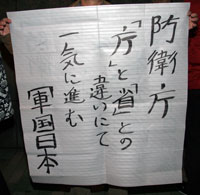 防衛庁
「庁」と「省」との
違いにて
一気に進む
「軍国日本